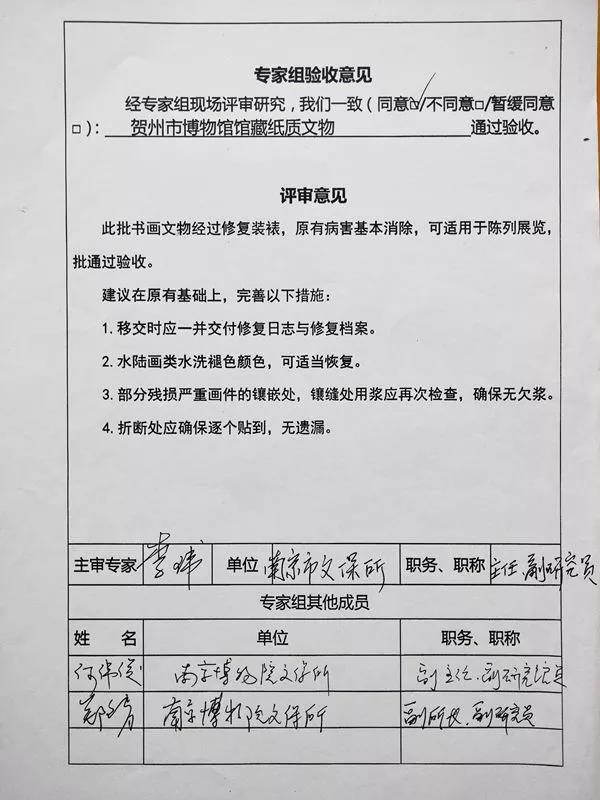 专家组验收意见
经专家组现场评审研究，我们一致（同意☑/不同意□/暂缓同意
□）： 贺州市博物馆馆藏纸质文物 通过验收。
评审意见
此批书画文物经过修复装裱，原有病害基本消除，可适用于陈列展览，
批通过验收。
建议在原有基础上，完善以下措施：
1. 移交时应一并交付修复日志与修复档案。
2. 水陆画类水洗褪色颜色，可适当恢复。
3. 部分残损严重画件的镶嵌处，镶缝处用浆应再次检查，确保无欠浆。
4. 折断处应确保逐个贴到，无遗漏。
主审专家 李玮 单位 南京市文保所 职务、职称 主任、副研究员
专家组其他成员
姓 名 单位 职务、职称
何伟俊 南京博物院文保所 副主任、副研究馆员
南京博物院文保所 副所长、副研究员